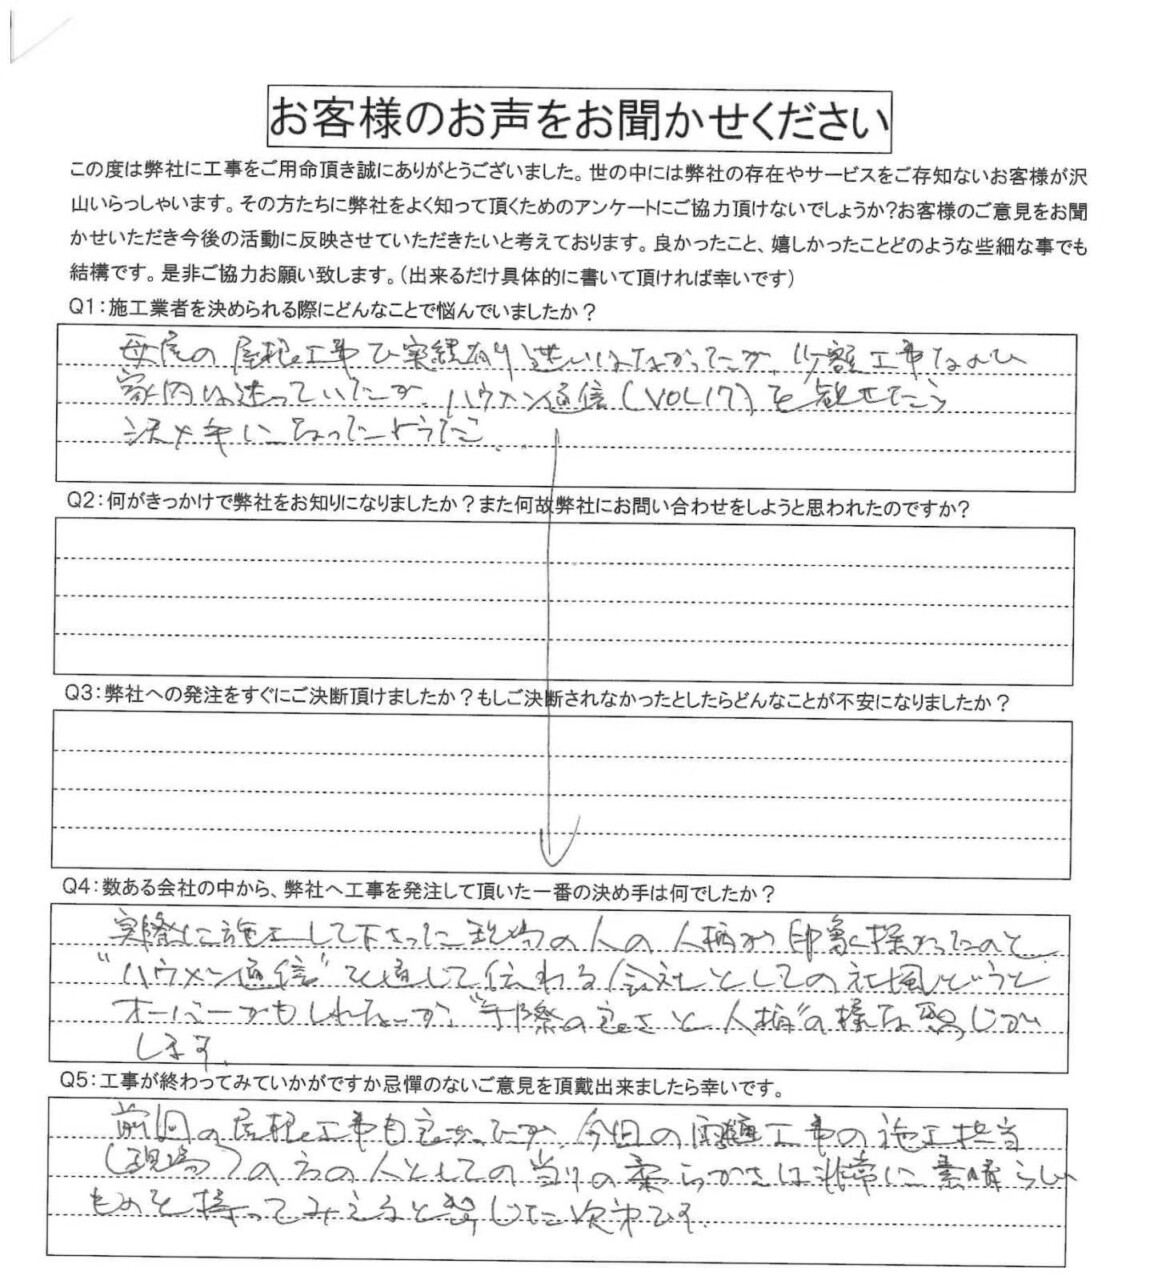 お客様のお声をお聞かせください
この度は弊社に工事をご用命頂き誠にありがとうございました。世の中には弊社の存在やサービスをご存知ないお客様が沢
山いらっしゃいます。その方たちに弊社をよく知って頂くためのアンケートにご協力頂けないでしょうか?お客様のご意見をお聞
かせいただき今後の活動に反映させていただきたいと考えております。良かったこと、嬉しかったことどのような些細な事でも
結構です。是非ご協力お願い致します。(出来るだけ具体的に書いて頂ければ幸いです)
Q1:施工業者を決められる際にどんなことで悩んでいましたか?
母屋の屋根工事で実績有り迷いはなかったが、少額工事なので
家内は迷っていたが、ハウメン通信(VOL17)を観せたら
決め手になったようだ。
Q2:何がきっかけで弊社をお知りになりましたか?また何故弊社にお問い合わせをしようと思われたのですか?
Q3:弊社への発注をすぐにご決断頂けましたか?もしご決断されなかったとしたらどんなことが不安になりましたか?
Q4:数ある会社の中から、弊社へ工事を発注して頂いた一番の決め手は何でしたか?
実際に施工して下さった現場の人の人柄が印象深かったのと
"ハウメン通信"を通じて伝わる会社としての社風というと
オーバーかもしれないが、"手際の良さと人柄"の様な感じが
します。
Q5:工事が終わってみていかがですか忌憚のないご意見を頂戴出来ましたら幸いです。
前回の屋根工事も良かったが、今回の雨樋工事の施工担当
(現場)の方の人としての当りの柔らかさは非常に素晴らしい
ものを持ってみえると感じた次第です。